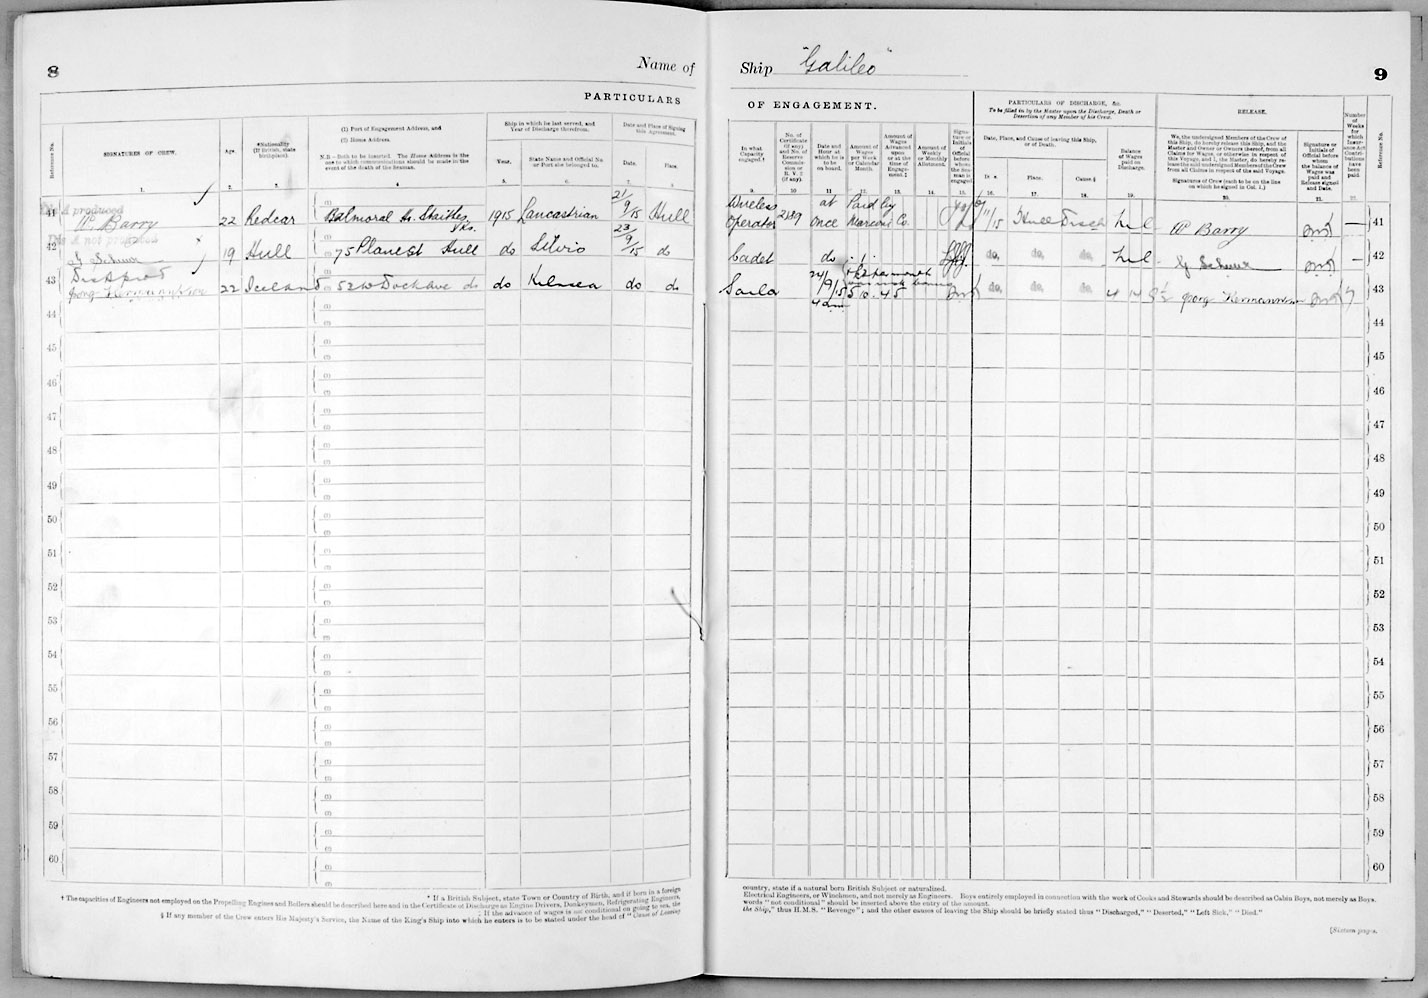 8
Name of
PARTICULARS
Reference No.
SIGNATURES OF CREW.
Age.
*Nationality
(If British, state
birthplace).
(1) Port of Engagement Address, and
(2) Home Address.
N.B.—Both to be inserted. The Home Address is the
one to which communications should be made in the
event of the death of the Seaman.
Ship in which he last served, and
Year of Discharge therefrom.
Year.
State Name and Official No.
or Port she belonged to.
Date and Place of Signing
this Agreement.
Date.
Place.
1. 2. 3. 4. 5. 6. 7. 8.
Dis A produced
41 W. Barry 22 Redcar Balmoral Ho. Skaithes Yks. 1915 Lancastrian 21/9/15 Hull
Dis A not produced
42 19 Hull 75 Plane St Hull do Silvio 23/9/15 do
43 22 Iceland do Kilnsea do do
44
45
46
47
48
49
50
51
52
53
54
55
56
57
58
59
60
* If a British Subject, state Town or Country of Birth, and if born in a foreign
† The capacities of Engineers not employed on the Propelling Engines and Boilers should be described here and in the Certificate of Discharge as Engine Drivers, Donkeymen, Refrigerating Engineers,
‡ If the advance of wages is not conditional on going to sea, the
§ If any member of the Crew enters His Majesty's Service, the Name of the King's Ship into which he enters is to be stated under the head of "Cause of Leaving
Ship "Galileo"
9
OF ENGAGEMENT.
PARTICULARS OF DISCHARGE, &c.
To be filled in by the Master upon the Discharge, Death or
Desertion of any Member of his Crew.
RELEASE.
Number
of
Weeks
for
which
Insur-
ance Act
Contri-
butions
have
been
paid.
Reference No.
In what
Capacity
engaged.†
No. of
Certificate
(if any)
and No. of
Reserve
Commis-
sion or
R. V. 2
(if any).
Date and
Hour at
which he is
to be
on board.
Amount of
Wages
per Week
or Calendar
Month.
Amount of
Wages
Advanced
upon
or at the
time of
Engage-
ment.‡
Amount of
Weekly
or Monthly
Allotment.
Signa-
ture or
Initials
of
Official
before
whom
the Sea-
man is
engaged.
Date, Place, and Cause of leaving this Ship,
or of Death.
Date.
Place.
Cause.§
Balance
of Wages
paid on
Discharge.
We, the undersigned Members of the Crew of
this Ship, do hereby release this Ship, and the
Master and Owner or Owners thereof, from all
Claims for Wages, or otherwise in respect of
this Voyage, and I, the Master, do hereby re-
lease the said undersigned Members of the Crew
from all Claims in respect of the said Voyage.
Signatures of Crew (each to be on the line
on which he signed in Col. 1.)
Signature or
Initials of
Official before
whom
the balance of
Wages was
paid and
Release signed
and Date.
9. 10 11 12. 13. 14. 15. 16. 17. 18. 19. 20. 21. 22.
Wireless Operator 2139 at once Paid by Marconi Co. 11/15 Hull Disch Nil W Barry — 41
Cadet do do. do. do. Nil — 42
Sailor 24/9/15 4 am 5 10. 45 do. do. do. 7 43
44
45
46
47
48
49
50
51
52
53
54
55
56
57
58
59
60
country, state if a natural born British Subject or naturalized.
Electrical Engineers, or Winchmen, and not merely as Engineers. Boys entirely employed in connection with the work of Cooks and Stewards should be described as Cabin Boys, not merely as Boys.
words "not conditional" should be inserted above the entry of the amount.
the Ship," thus H.M.S. "Revenge"; and the other causes of leaving the Ship should be briefly stated thus "Discharged," "Deserted," "Left Sick," "Died."
[Sixteen pages.